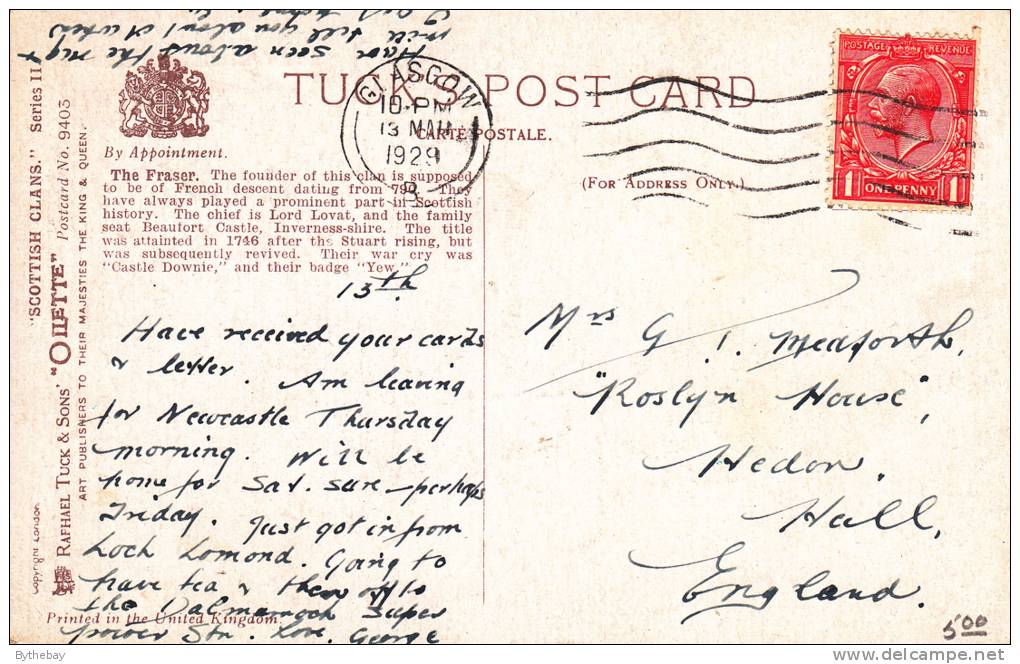 "SCOTTISH CLANS." Series II
RAPHAEL TUCK & SONS' "OILETTE" Postcard No. 9403
ART PUBLISHERS TO THEIR MAJESTIES THE KING & QUEEN.
Copyright London
TUCK'S POST CARD
CARTE POSTALE.
(FOR ADDRESS ONLY.)
By Appointment.
The Fraser. The founder of this clan is supposed
to be of French descent dating from 790. They
have always played a prominent part in Scottish
history. The chief is Lord Lovat, and the family
seat Beaufort Castle, Inverness-shire. The title
was attainted in 1746 after the Stuart rising, but
was subsequently revived. Their war cry was
"Castle Downie," and their badge "Yew."
GLASGOW
10-PM
13 MAR
1929
POSTAGE REVENUE
1 ONE PENNY 1
13th
Have received your cards
& letter. Am leaving
for Newcastle Thursday
morning. Will be
home for Sat. sure - perhaps
Friday. Just got in from
Loch Lomond. Going to
have tea & then off to
the Dalmarnock Super
power Stn. Love. George
Have seen about the
will tell you about it when
I get home
Printed in the United Kingdom.
Mrs G. Medforth,
"Roslyn House",
Hedon,
Hull,
England.
5.00
Bythebay
delcampe.net